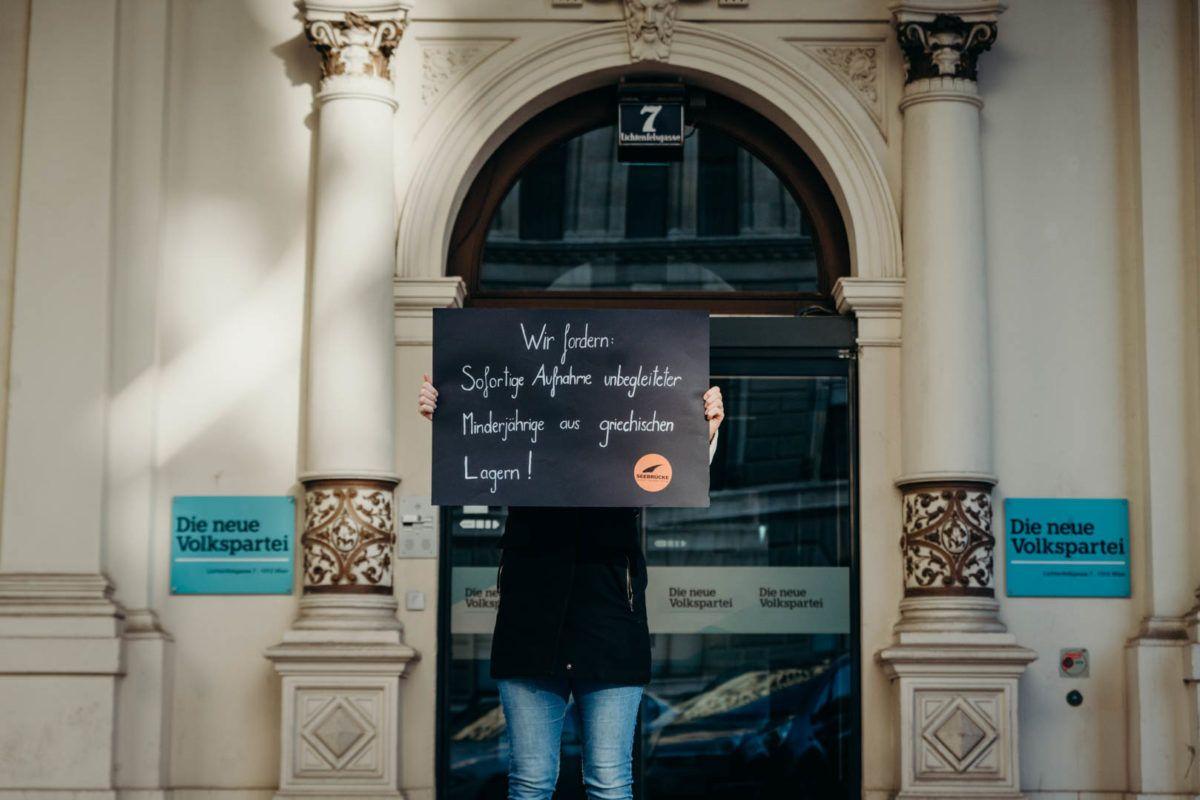 7
Lichtenfelsgasse
Wir fordern:
Sofortige Aufnahme unbegleiteter
Minderjährige aus griechischen
Lagern!
SEEBRÜCKE
Die neue
Volkspartei
Lichtenfelsgasse 7 · 1010 Wien
Die neue
Volkspartei
Lichtenfelsgasse 7 · 1010 Wien
Die neue
Volks
Die neue
Volkspartei
Die neue
Volkspartei